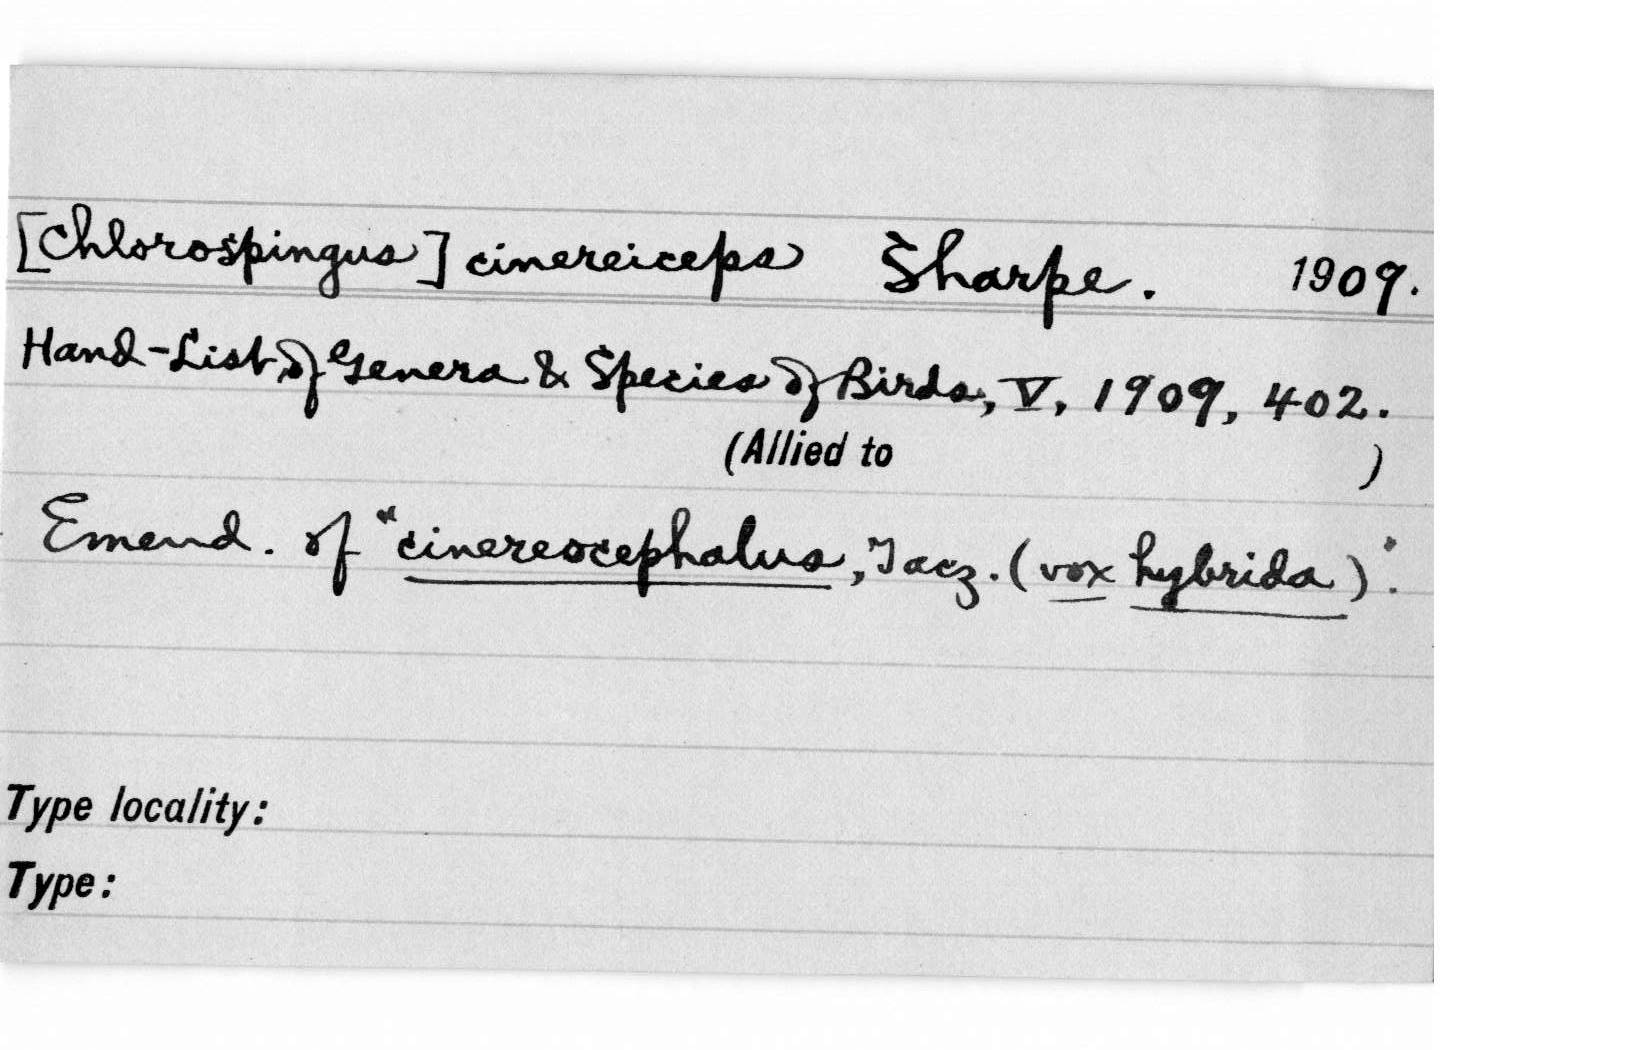 [Chlorospingus] cinereiceps Sharpe. 1909.
Hand-List of Genera & Species of Birds, V, 1909, 402.
(Allied to )
Emend. of "cinereocephalus, Tacz. (vox hybrida)".
Type locality:
Type: